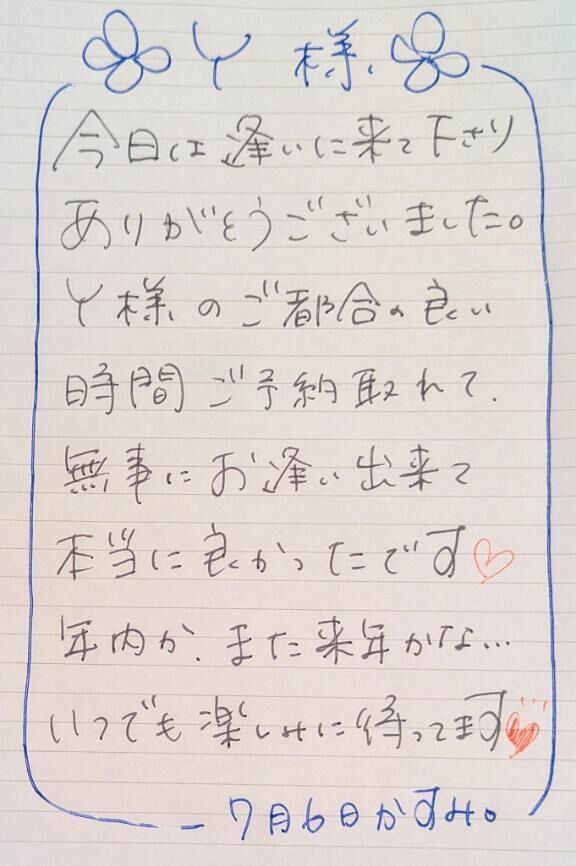 Y様
今日は逢いに来て下さり
ありがとうございました。
Y様のご都合の良い
時間ご予約取れて、
無事にお逢い出来て
本当に良かったです♡
年内か、また来年かな…
いつでも楽しみに待ってます♥
7月6日かすみ。